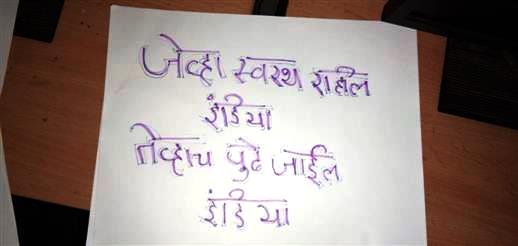 जेव्हा स्वस्थ राहील
इंडिया
तेव्हाच पुढे जाईल
इंडिया